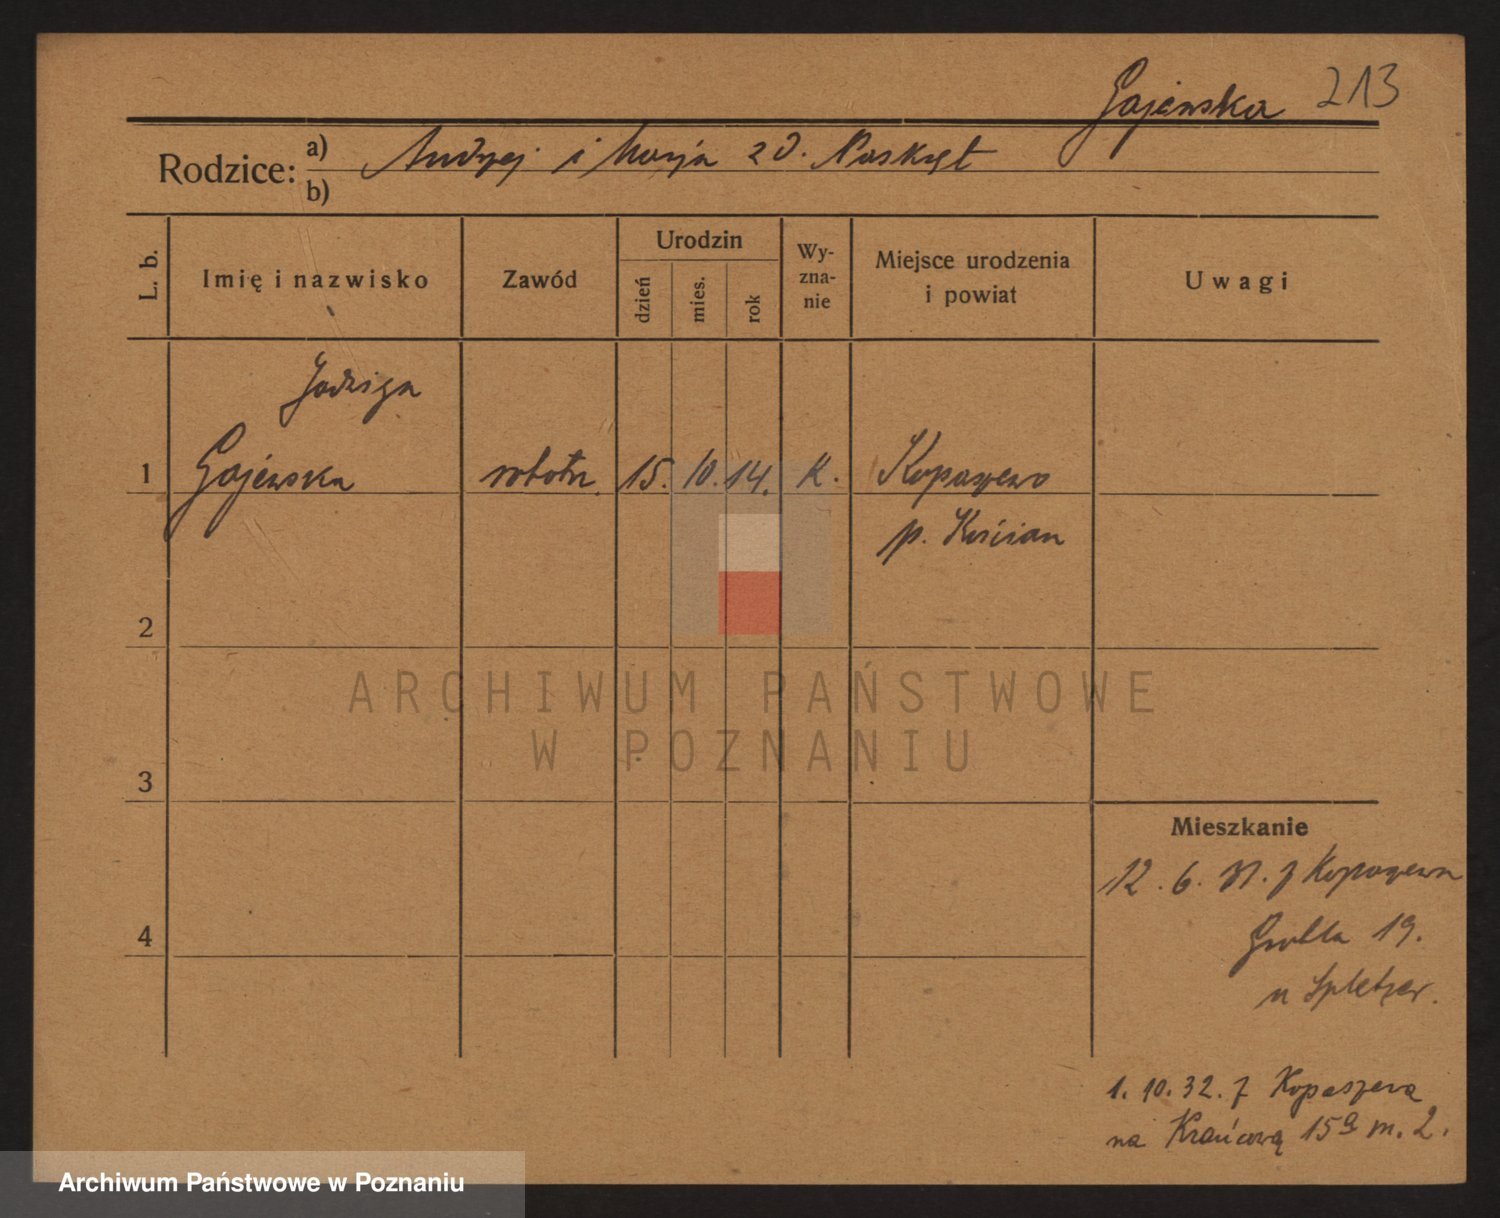 Gajewska 213
Rodzice: a) Andrzej i Marja zd. Paskręt
b)
L. b.
Imię i nazwisko
Zawód
Urodzin
dzień
mies.
rok
Wy-
zna-
nie
Miejsce urodzenia
i powiat
Uwagi
Jadwiga
1 Gajewska robotn. 15. 10. 14. k. Kopaszewo
p. Kościan
2
3
4
ARCHIWUM PAŃSTWOWE
W POZNANIU
Mieszkanie
12. 6. 31. z Kopaszewa
Grobla 19.
u Spletzer.
1. 10. 32. z Kopaszewa
na Krańcową 15a m. 2.
Archiwum Państwowe w Poznaniu